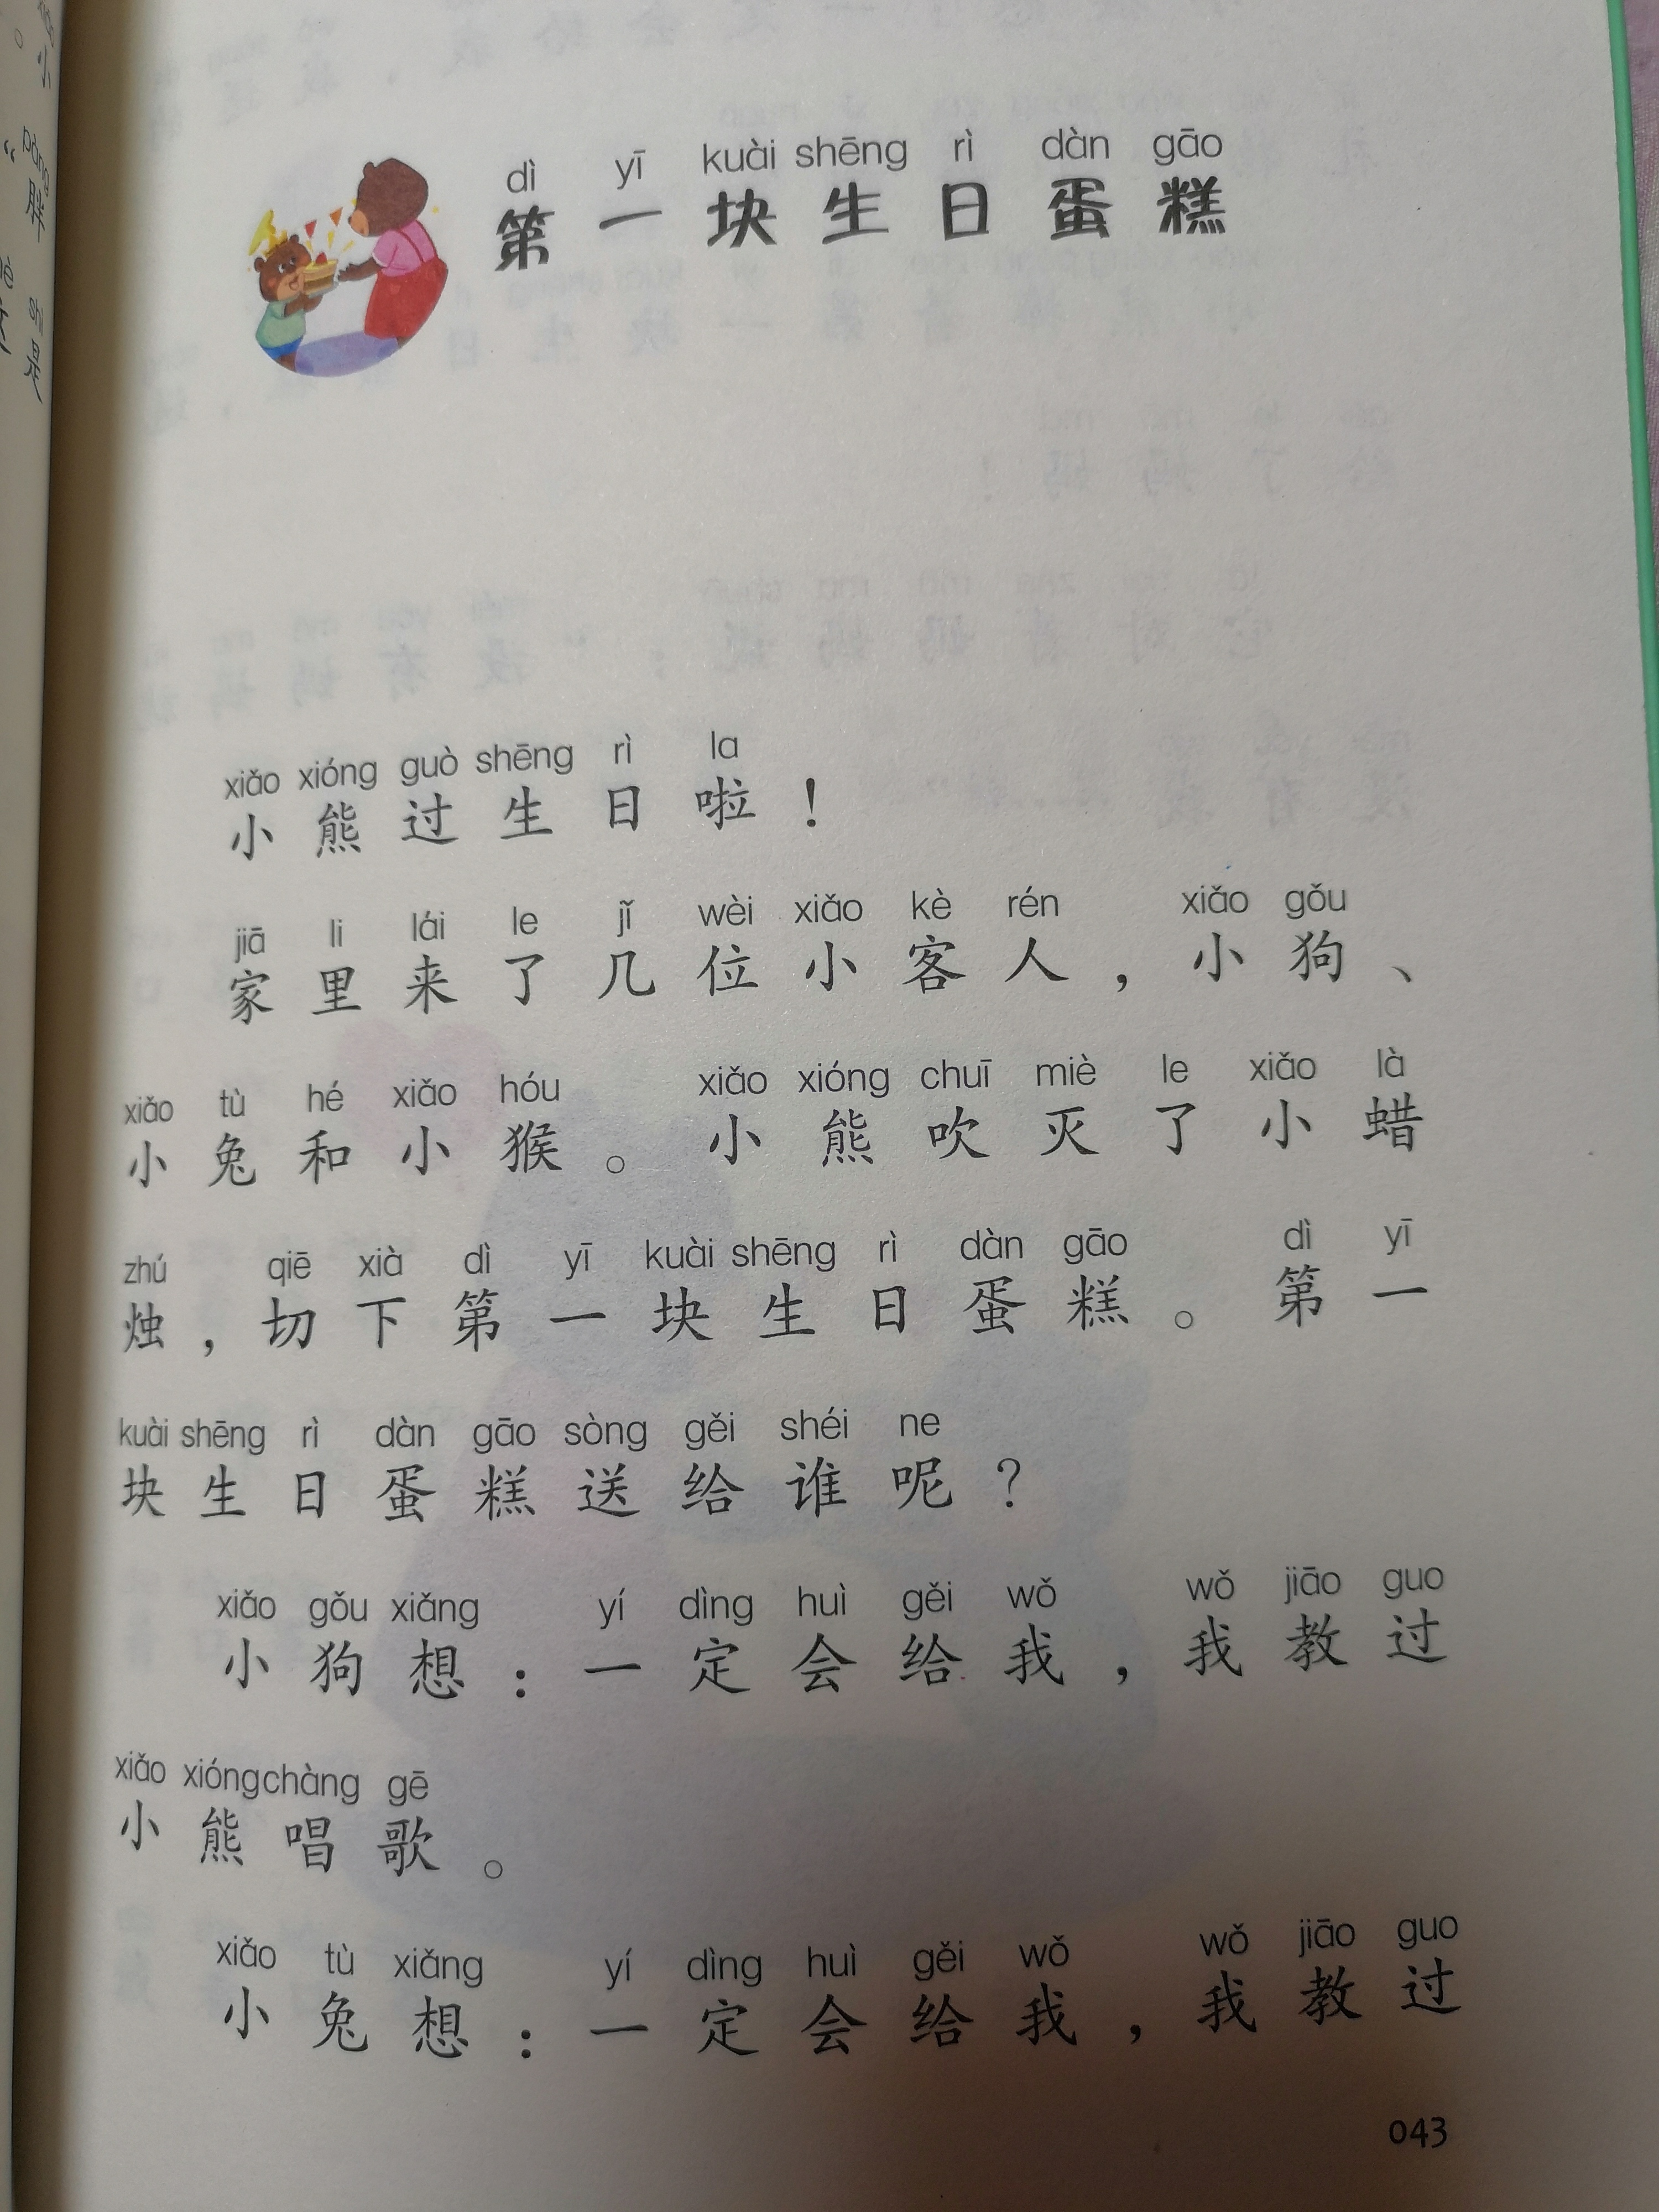 dì yī kuài shēng rì dàn gāo
第一块生日蛋糕
xiǎo xióng guò shēng rì la
小熊过生日啦！
jiā li lái le jǐ wèi xiǎo kè rén xiǎo gǒu
家里来了几位小客人，小狗、
xiǎo tù hé xiǎo hóu xiǎo xióng chuī miè le xiǎo là
小兔和小猴。小熊吹灭了小蜡
zhú qiē xià dì yī kuài shēng rì dàn gāo dì yī
烛，切下第一块生日蛋糕。第一
kuài shēng rì dàn gāo sòng gěi shéi ne
块生日蛋糕送给谁呢？
xiǎo gǒu xiǎng yí dìng huì gěi wǒ wǒ jiāo guo
小狗想：一定会给我，我教过
xiǎo xióng chàng gē
小熊唱歌。
xiǎo tù xiǎng yí dìng huì gěi wǒ wǒ jiāo guo
小兔想：一定会给我，我教过
043